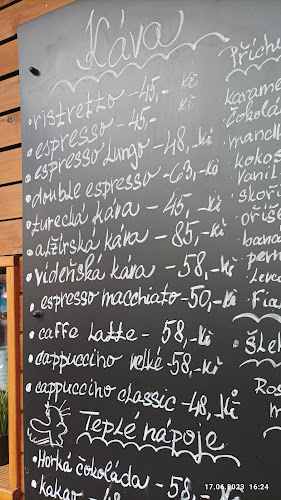 Káva
ristretto - 45,- Kč
espresso - 45,- Kč
espresso Lungo - 48,- Kč
double espresso - 63,- Kč
turecká káva - 45,- Kč
alžírská káva - 85,- Kč
vídeňská káva - 58,- Kč
espresso macchiato - 50,- Kč
caffe Latte - 58,- Kč
cappuccino velké - 58,- Kč
cappuccino classic - 48,- Kč
Teplé nápoje
Horká čokoláda - 58,- Kč
kakao
Příchu
karame
čokolá
mandl
kokos
vanil
skoři
oříše
baná
pern
Leva
Fia
Šle
Ro
ma
17.06.2023 16:24